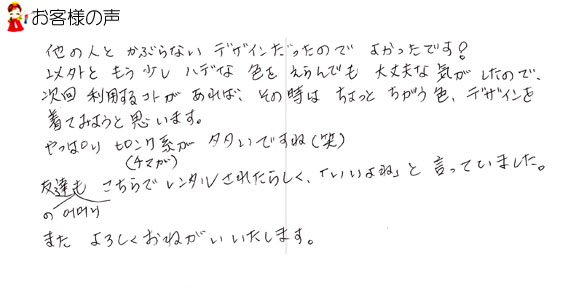 お客様の声
他の人と かぶらない デザインだったので よかったです?
以外と もう少し ハデな 色を えらんでも 大丈夫な 気が したので、
次回 利用するコトが あれば、その時は ちょっと ちがう色、デザインを
着てみようと思います。
やっぱり ピンク系が 多いですね(笑)
(チマが)
友達も こちらで レンタル されたらしく、「いいよね」と 言っていました。
の 어머니
また よろしく おねがい いたします。